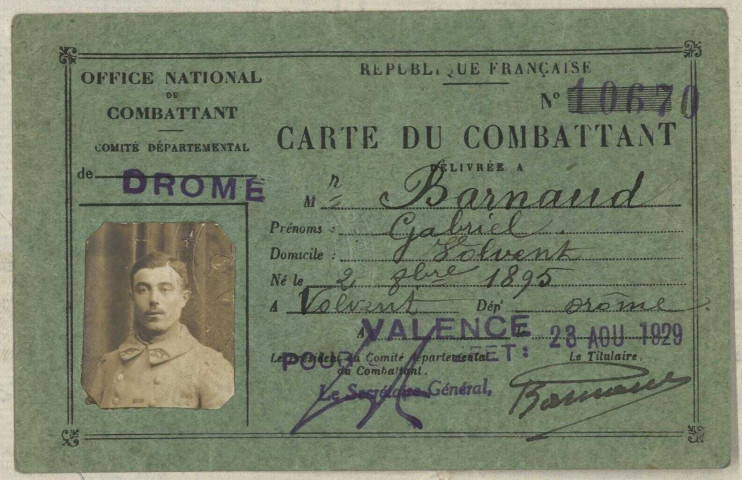 OFFICE NATIONAL
DU
COMBATTANT
COMITÉ DÉPARTEMENTAL
de DROME
RÉPUBLIQUE FRANÇAISE
N° 10670
CARTE DU COMBATTANT
DÉLIVRÉE A
M r Barnaud
Prénoms : Gabriel.
Domicile : Volvent
Né le 2 8bre 1895
A Volvent Dép t Drôme.
A VALENCE 23 AOU 1929
POUR ET:
Le Président du Comité départemental
du Combattant.
Le Titulaire.
Le Secrétaire Général,
Barnaud